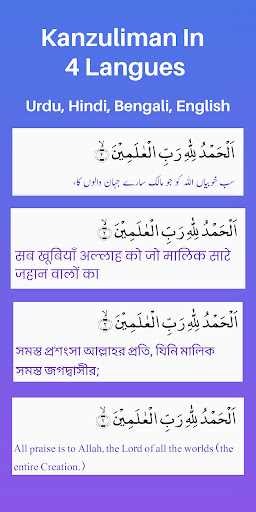 Kanzuliman In
4 Langues
Urdu, Hindi, Bengali, English
اَلْحَمْدُ لِلّٰهِ رَبِّ الْعٰلَمِیْنَۙ(۲)
سب خوبیاں اللہ کو جو مالک سارے جہان والوں کا،
اَلْحَمْدُ لِلّٰهِ رَبِّ الْعٰلَمِیْنَۙ(۲)
सब ख़ूबियाँ अल्लाह को जो मालिक सारे
जहान वालों का
اَلْحَمْدُ لِلّٰهِ رَبِّ الْعٰلَمِیْنَۙ(۲)
সমস্ত প্রশংসা আল্লাহর প্রতি, যিনি মালিক
সমস্ত জগদ্বাসীর;
اَلْحَمْدُ لِلّٰهِ رَبِّ الْعٰلَمِیْنَۙ(۲)
All praise is to Allah, the Lord of all the worlds (the
entire Creation.)